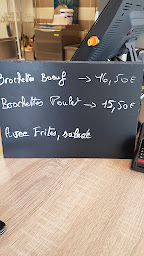 Brochettes Boeuf → 16,50€
Brochettes Poulet → 15,50€
Avec Frites, salade